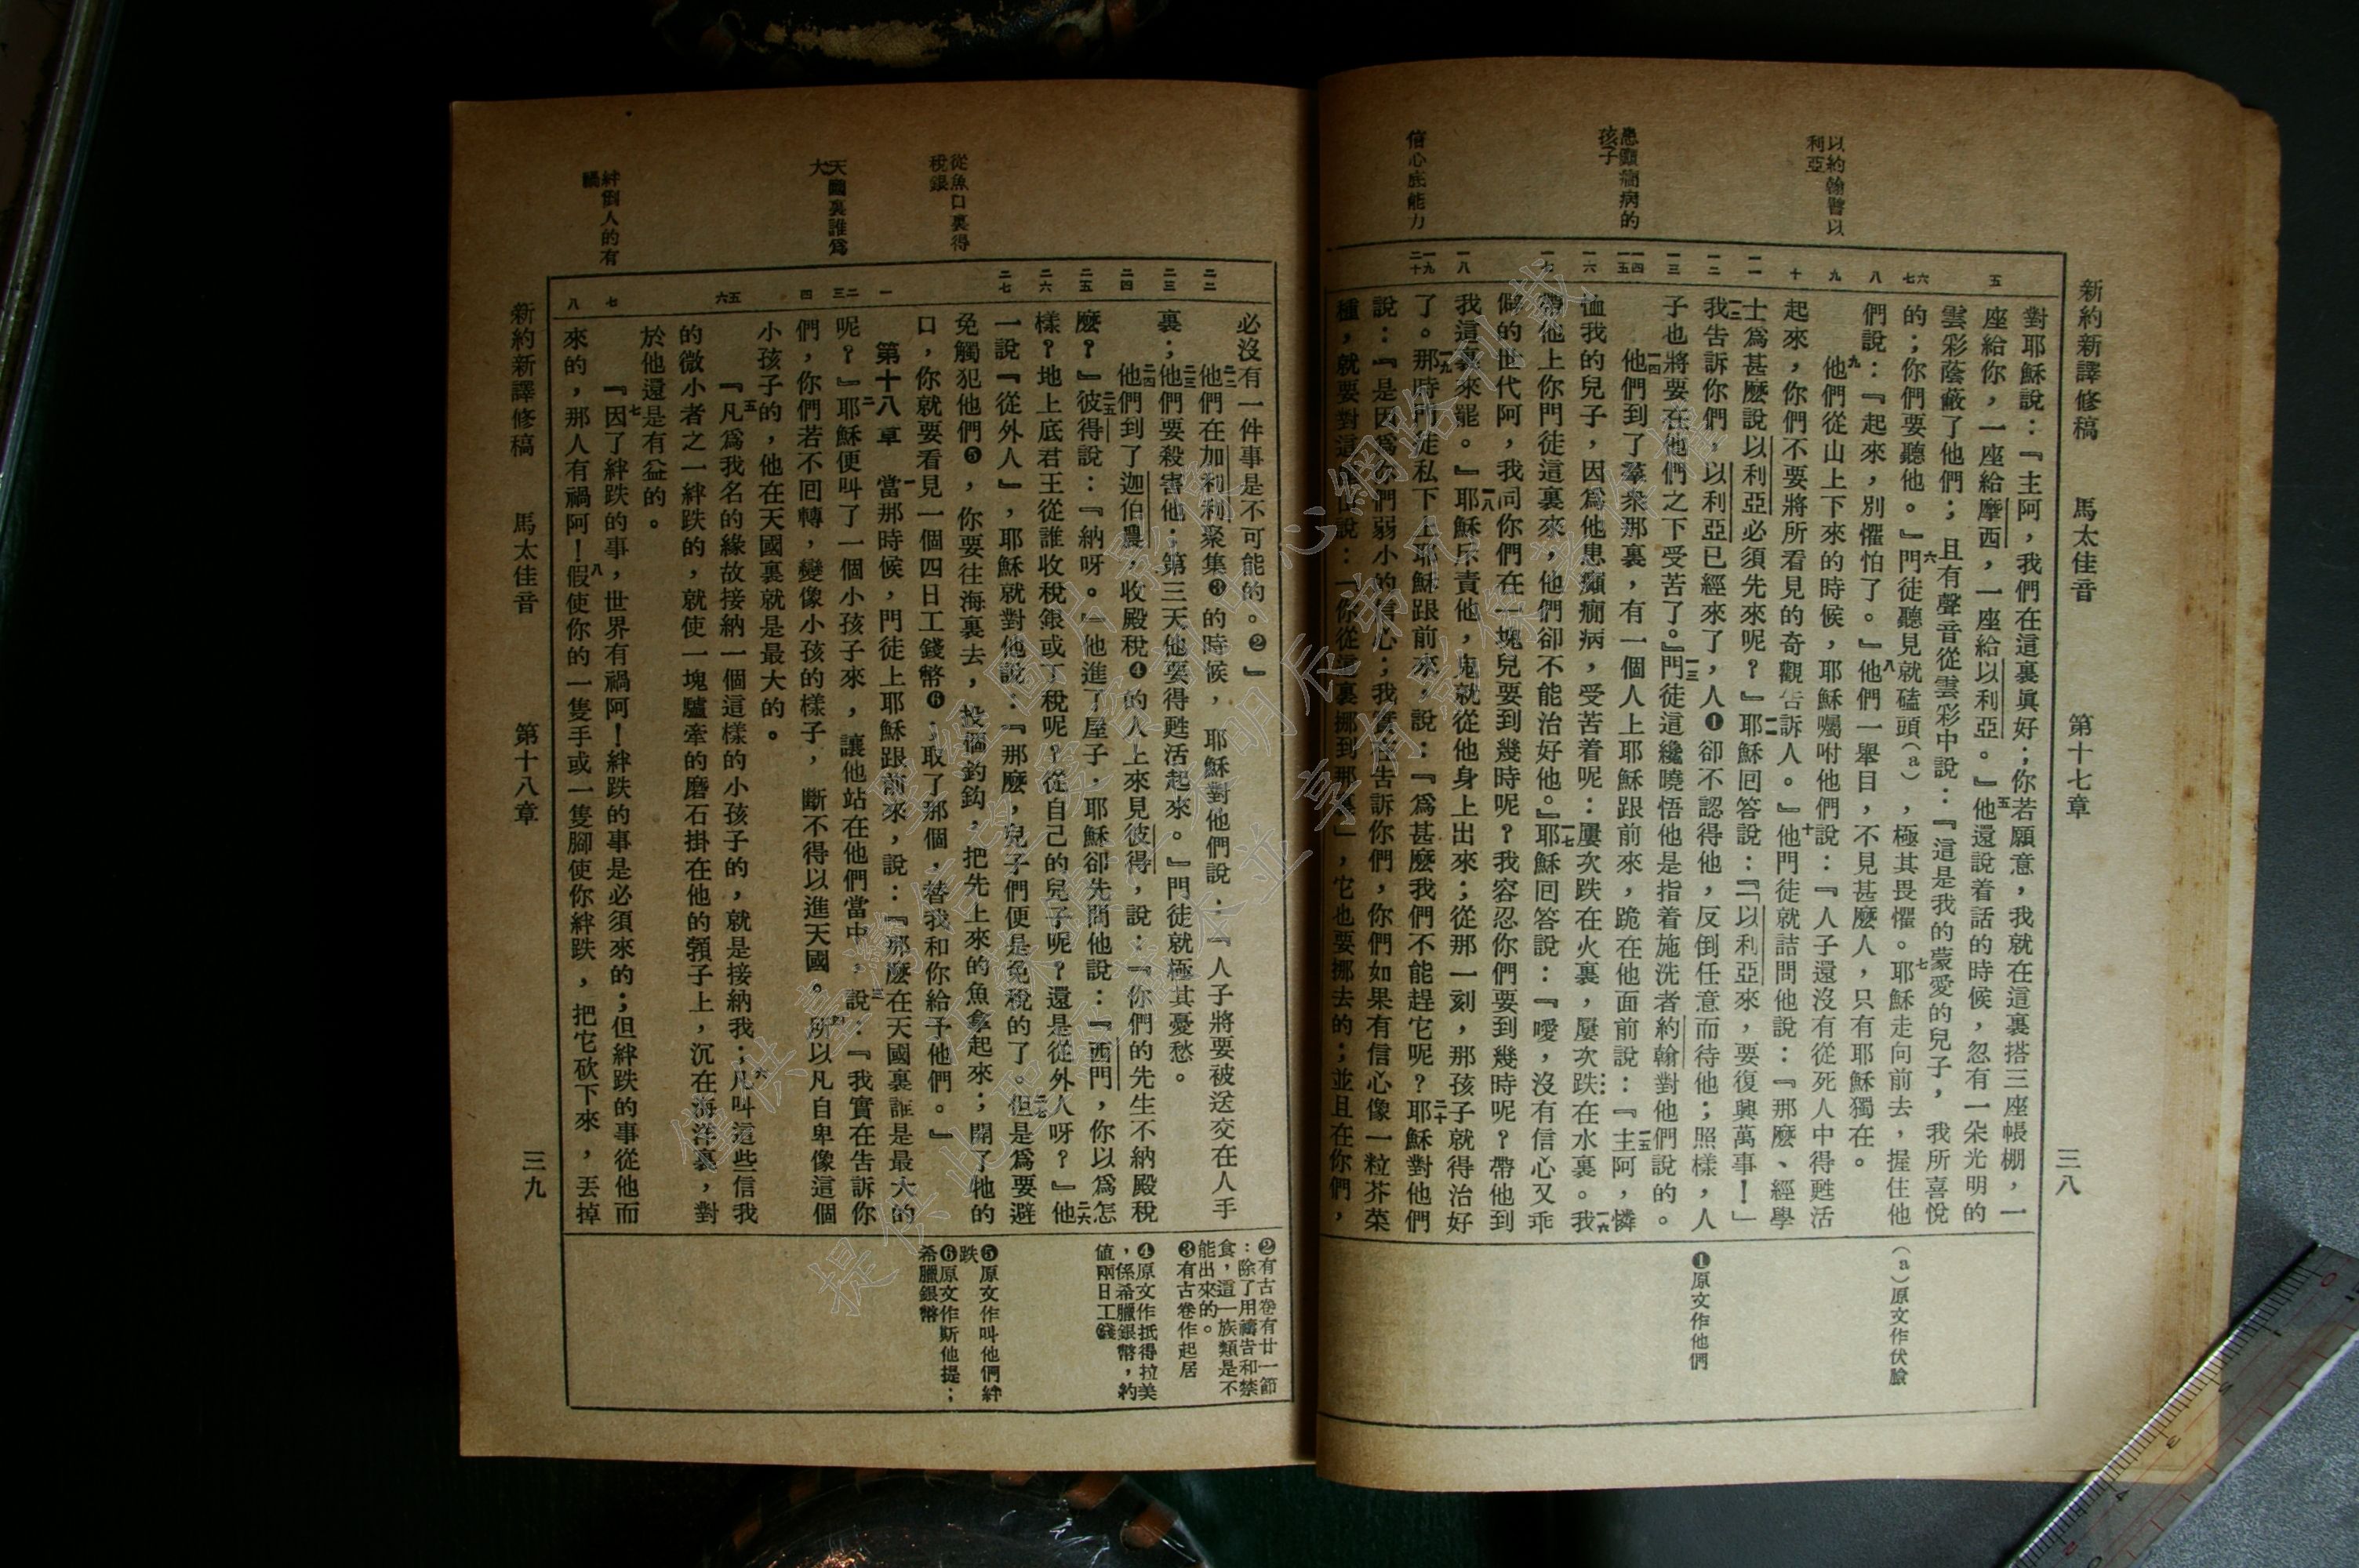 新約新譯修稿　馬太佳音　第十七章　三八
以約翰譬以
利亞
患癲癇病的
孩子
信心底能力
五
六
七
八
九
十
一一
一二
一三
一四
一五
一六
一七
一八
一九
二十
對耶穌說：『主阿，我們在這裏眞好；你若願意，我就在這裏搭三座帳棚，一
座給你，一座給摩西，一座給以利亞。』五他還說着話的時候，忽有一朵光明的
雲彩蔭蔽了他們；且有聲音從雲彩中說：『這是我的蒙愛的兒子，我所喜悅
的；你們要聽他。』六門徒聽見就磕頭（a），極其畏懼。七耶穌走向前去，握住他
們說：『起來，別懼怕了。』八他們一舉目，不見甚麽人，只有耶穌獨在。
九他們從山上下來的時候，耶穌囑咐他們說：『人子還沒有從死人中得甦活
起來，你們不要將所看見的奇觀告訴人。』十他門徒就詰問他說：『那麽、經學
士爲甚麽說以利亞必須先來呢？』一一耶穌回答說：『「以利亞來，要復興萬事！」
一二我告訴你們，以利亞已經來了，人❶卻不認得他，反倒任意而待他；照樣，人
子也將要在他們之下受苦了。』一三門徒這纔曉悟他是指着施洗者約翰對他們說的。
一四他們到了羣衆那裏，有一個人上耶穌跟前來，跪在他面前說：一五『主阿，憐
恤我的兒子，因爲他患癲癇病，受苦着呢：屢次跌在火裏，屢次跌在水裏。一六我
帶他上你門徒這裏來，他們卻不能治好他。』一七耶穌回答說：『噯，沒有信心又乖
僻的世代阿，我同你們在一塊兒要到幾時呢？我容忍你們要到幾時呢？帶他到
我這裏來罷。』一八耶穌斥責他，鬼就從他身上出來；從那一刻，那孩子就得治好
了。一九那時門徒私下上耶穌跟前來，說：『爲甚麽我們不能趕它呢？』二十耶穌對他們
說：『是因爲你們弱小的信心；我實在告訴你們，你們如果有信心像一粒芥菜
種，就要對這山說：「你從這裏挪到那裏」，它也要挪去的；並且在你們，
（a）原文作伏臉
❶原文作他們
從魚口裏得
稅銀
天國裏誰爲
大
絆倒人的有
禍
二二
二三
二四
二五
二六
二七
一
二
三
四
五
六
七
八
必沒有一件事是不可能的。❷』
二二他們在加利利聚集❸的時候，耶穌對他們說：『人子將要被送交在人手
裏；二三他們要殺害他；第三天他要得甦活起來。』門徒就極其憂愁。
二四他們到了迦伯農，收殿稅❹的人上來見彼得，說：『你們的先生不納殿稅
麽？』二五彼得說：『納呀。』他進了屋子，耶穌卻先問他說：『西門，你以爲怎
樣？地上底君王從誰收稅銀或丁稅呢？從自己的兒子呢？還是從外人呀？』二六他
一說『從外人』，耶穌就對他說：『那麽，兒子們便是免稅的了。二七但是爲要避
免觸犯他們❺，你要往海裏去，投個釣鈎，把先上來的魚拿起來；開了牠的
口，你就要看見一個四日工錢幣❻；取了那個，替我和你給予他們。』
第十八章　一當那時候，門徒上耶穌跟前來，說：『那麽在天國裏誰是最大的
呢？』二耶穌便叫了一個小孩子來，讓他站在他們當中，三說：『我實在告訴你
們，你們若不回轉，變像小孩的樣子，斷不得以進天國。四所以凡自卑像這個
小孩子的，他在天國裏就是最大的。
五『凡爲我名的緣故接納一個這樣的小孩子的，就是接納我；六凡叫這些信我
的微小者之一絆跌的，就使一塊驢牽的磨石掛在他的頸子上，沉在海洋裏，對
於他還是有益的。
七『因了絆跌的事，世界有禍阿！絆跌的事是必須來的；但絆跌的事從他而
來的，那人有禍阿！八假使你的一隻手或一隻腳使你絆跌，把它砍下來，丟掉
❷有古卷有廿一節
：除了用禱吿和禁
食，這一族類是不
能出來的。
❸有古卷作起居
❹原文作抵得拉美
，係希臘銀幣，約
値兩日工錢
❺原文作叫他們絆
跌
❻原文作斯他提；
希臘銀幣
新約新譯修稿　馬太佳音　第十八章　三九